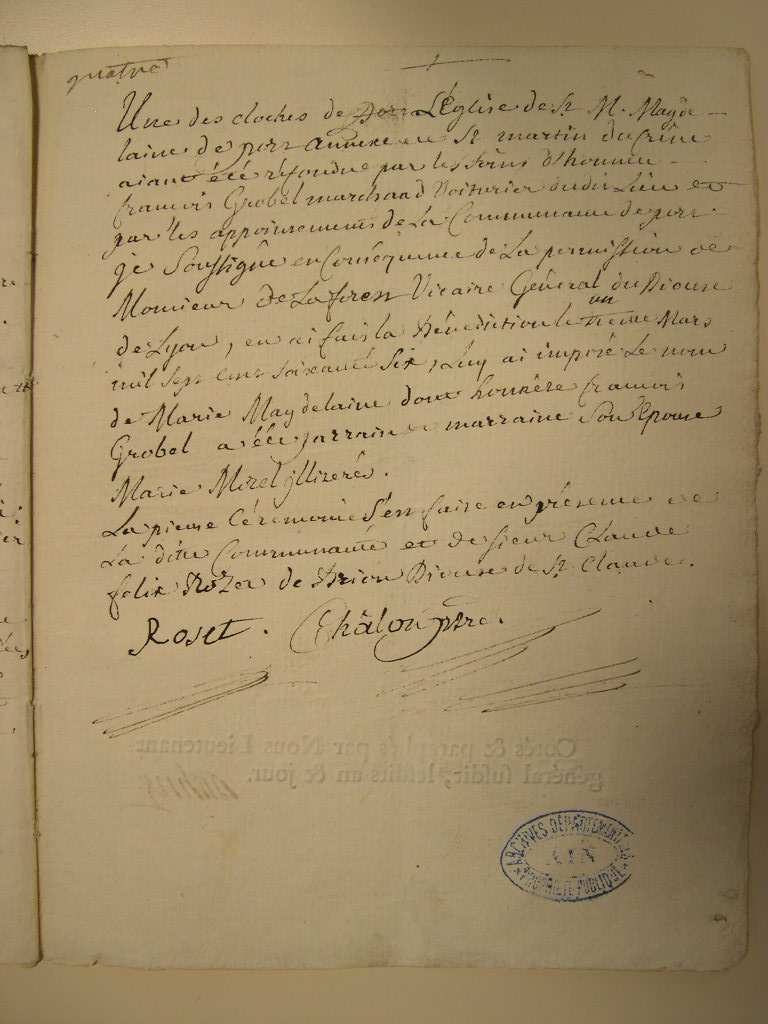 quatre
Une des cloches de L'Église de St. M. Magde-
laine de port annexe de St martin du frêne
aiant été réfondue par les soins d'honnête
francois Grobel marchand Voiturier dudit Lieu et
par les de La Communauté de port.
je Soussigné en Conséquence de La permission de
Monsieur De Laforest Vicaire Général du Diocese
de Lyon, en ai fait la Bénédiction le Mars
mil sept cent soixante Six, Luy ai imposé Le nom
de Marie Magdelaine dont honnête francois
Grobel a été parrain et marraine Son Epouse
Marie
La pieuse Cérémonie S'est faite en présence de
La dite Communauté et de sieur Claude
felix Rozet de Diocese de St. Claude.
Roset. Châlon ptre.
Cotés & paraphés par Nous Lieutenant
général susdit, lesdits an & jour.
ARCHIVES DÉPARTEMENTALES
AIN
PROPRIÉTÉ PUBLIQUE